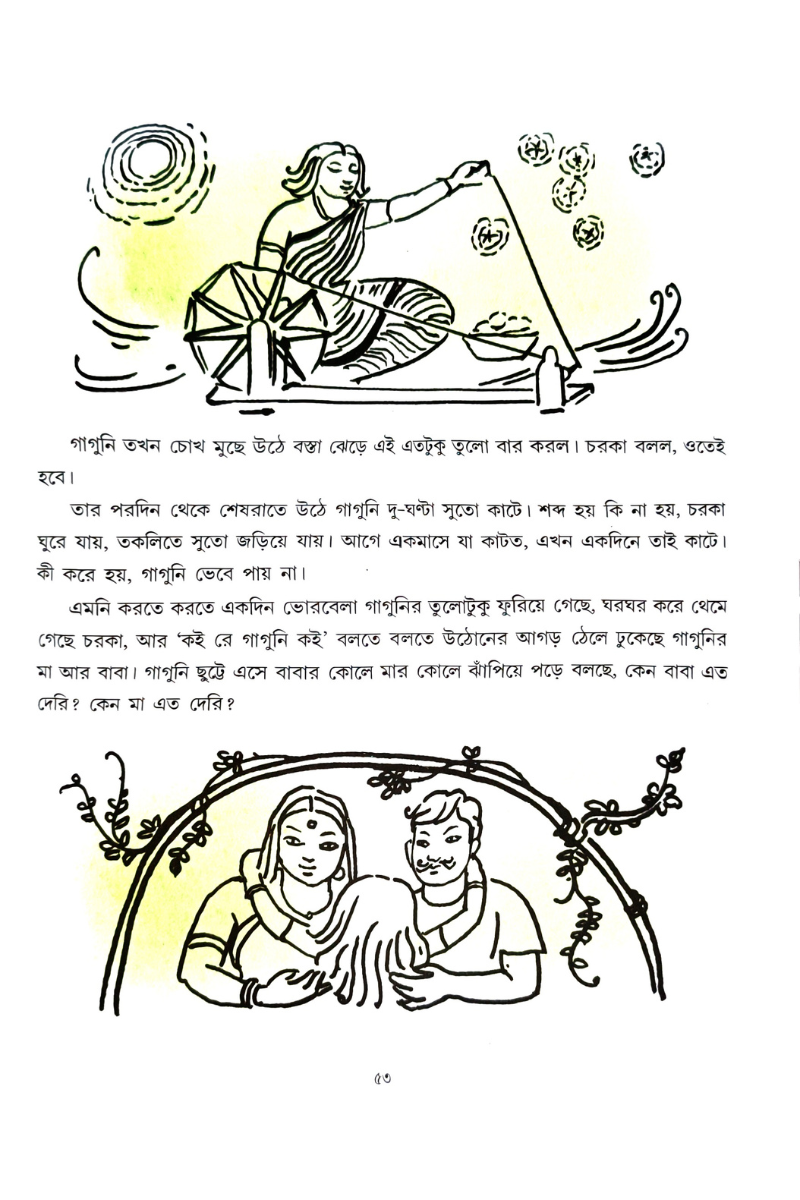 গাগুনি তখন চোখ মুছে উঠে বস্তা ঝেড়ে এই এতটুকু তুলো বার করল। চরকা বলল, ওতেই
হবে।
তার পরদিন থেকে শেষরাতে উঠে গাগুনি দু-ঘণ্টা সুতো কাটে। শব্দ হয় কি না হয়, চরকা
ঘুরে যায়, তকলিতে সুতো জড়িয়ে যায়। আগে একমাসে যা কাটত, এখন একদিনে তাই কাটে।
কী করে হয়, গাগুনি ভেবে পায় না।
এমনি করতে করতে একদিন ভোরবেলা গাগুনির তুলোটুকু ফুরিয়ে গেছে, ঘরঘর করে থেমে
গেছে চরকা, আর ‘কই রে গাগুনি কই’ বলতে বলতে উঠোনের আগড় ঠেলে ঢুকেছে গাগুনির
মা আর বাবা। গাগুনি ছুট্টে এসে বাবার কোলে মার কোলে ঝাঁপিয়ে পড়ে বলছে, কেন বাবা এত
দেরি? কেন মা এত দেরি?
৫৩